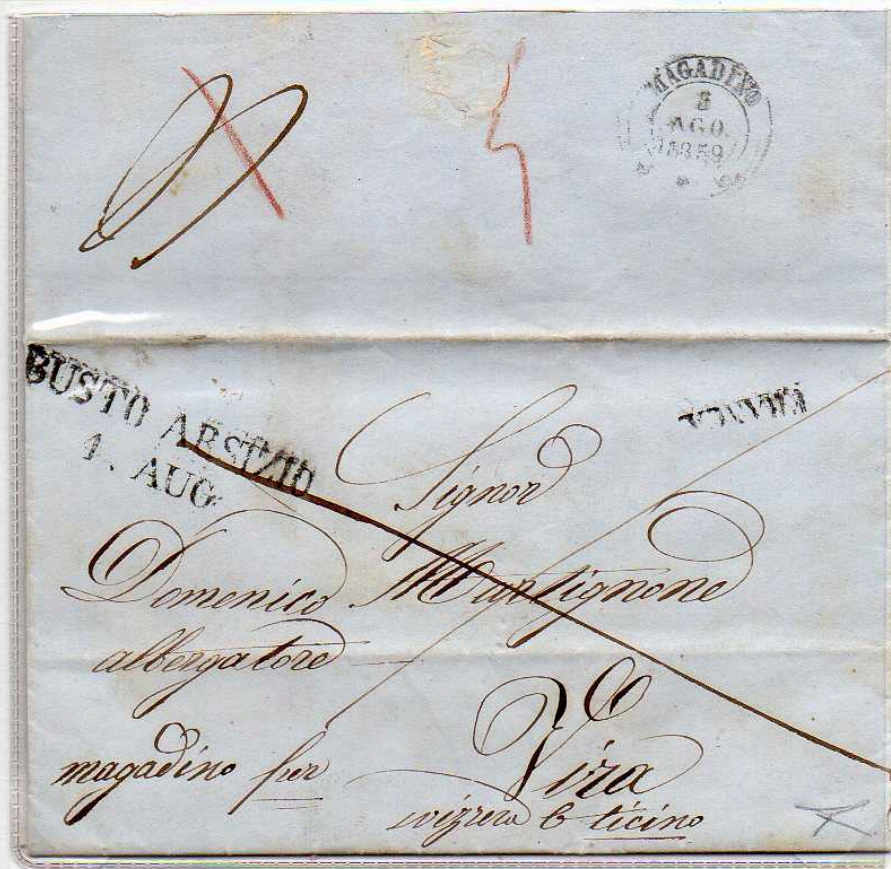 MAGADINO
3
AGO.
1859
BUSTO ARSIZIO
1. AUG.
FRANCA
Signor
Domenico
albergatore
magadino per Vira
svizzera C ticino